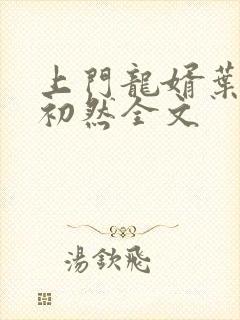 上門龍婿葉
初然全文
湯欽飛